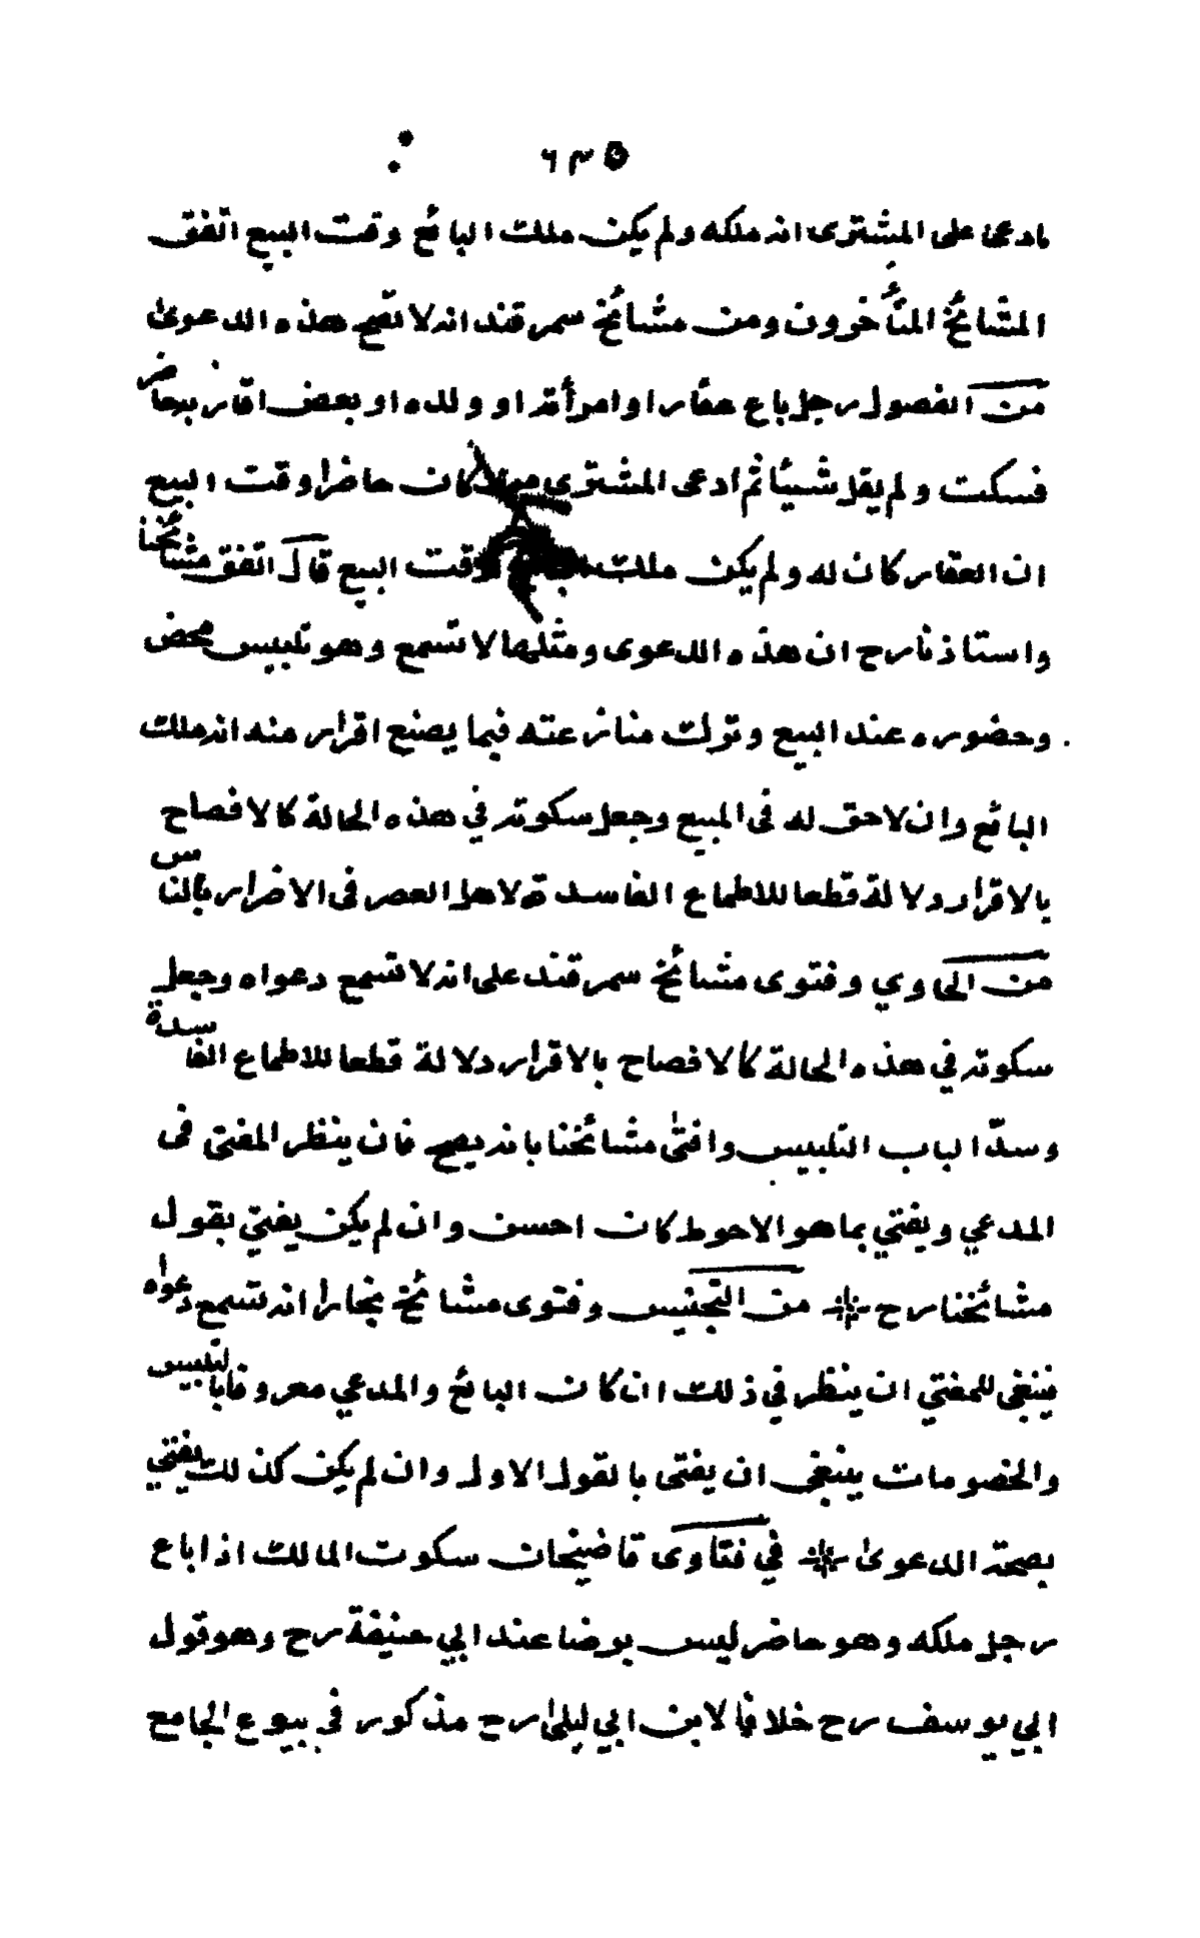 ٦٣٥
بادعى على المشترى انه ملكه ولم يكن ملك البائع وقت البيع اتفق
المشائخ المتأخرون ومن مشائخ سمرقند انه لا تصح هذه الدعوىٰ
من الفصول رجل باع عقارا وامرأته او ولده او بعض اقاربه حاضر
فسكت ولم يقل شيئا ثم ادعى المشترى كان حاضرا وقت البيع
ان العقار كان له ولم يكن ملك وقت البيع قال اتفق مشائخنا
واستاذنا رح ان هذه الدعوى ومثلها لا تسمع وهو تلبيس محض
وحضوره عند البيع وترك منازعته فيما يصنع اقرار منه انه ملك
البائع وان لا حق له فى المبيع وجعل سكوته في هذه الحالة كالافصاح
بالاقرار دلالة قطعا للاطماع الفاسدة لاهل العصر فى الاضرار بالناس
من الحاوي وفتوى مشائخ سمرقند على انه لا تسمع دعواه وجعل
سكوته في هذه الحالة كالافصاح بالاقرار دلالة قطعا للاطماع الفاسدة
وسدّ الباب التلبيس وافتىٰ مشائخنا بانه يصح فان ينظر المفتى فى
المدعي ويفتي بما هو الاحوط كان احسن وان لم يكن يفتي بقول
مشائخنا رح * من التجنيس وفتوى مشائخ بخارا انه تسمع دعواه
ينبغى للمفتي ان ينظر في ذلك ان كان البائع والمدعي معروفا بالتلبيس
والخصومات ينبغى ان يفتى بالقول الاول وان لم يكن كذلك يفتي
بصحة الدعوىٰ * في فتاوى قاضيخان سكوت المالك اذا باع
رجل ملكه وهو حاضر ليس برضا عند ابي حنيفة رح وهو قول
ابي يوسف رح خلافا لابن ابي ليلىٰ رح مذكور فى بيوع الجامع